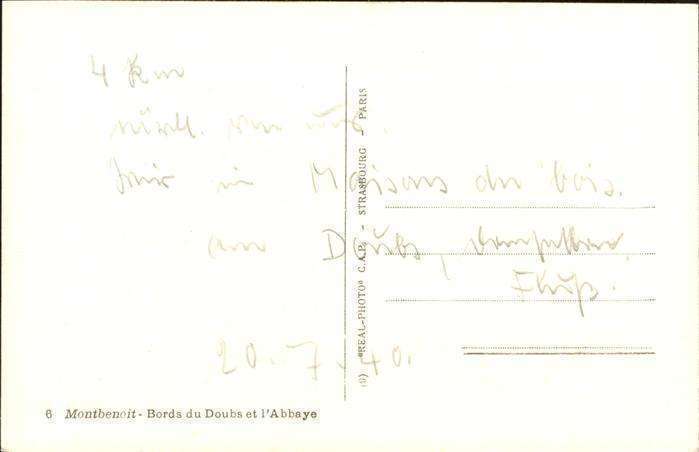 4 Km
nördl. von uns.
wir in Maisons du bois.
am Doubs,
Fluß.
20.7.40.
"REAL-PHOTO" C.A.P. - STRASBOURG - PARIS
6 Montbenoit - Bords du Doubs et l'Abbaye